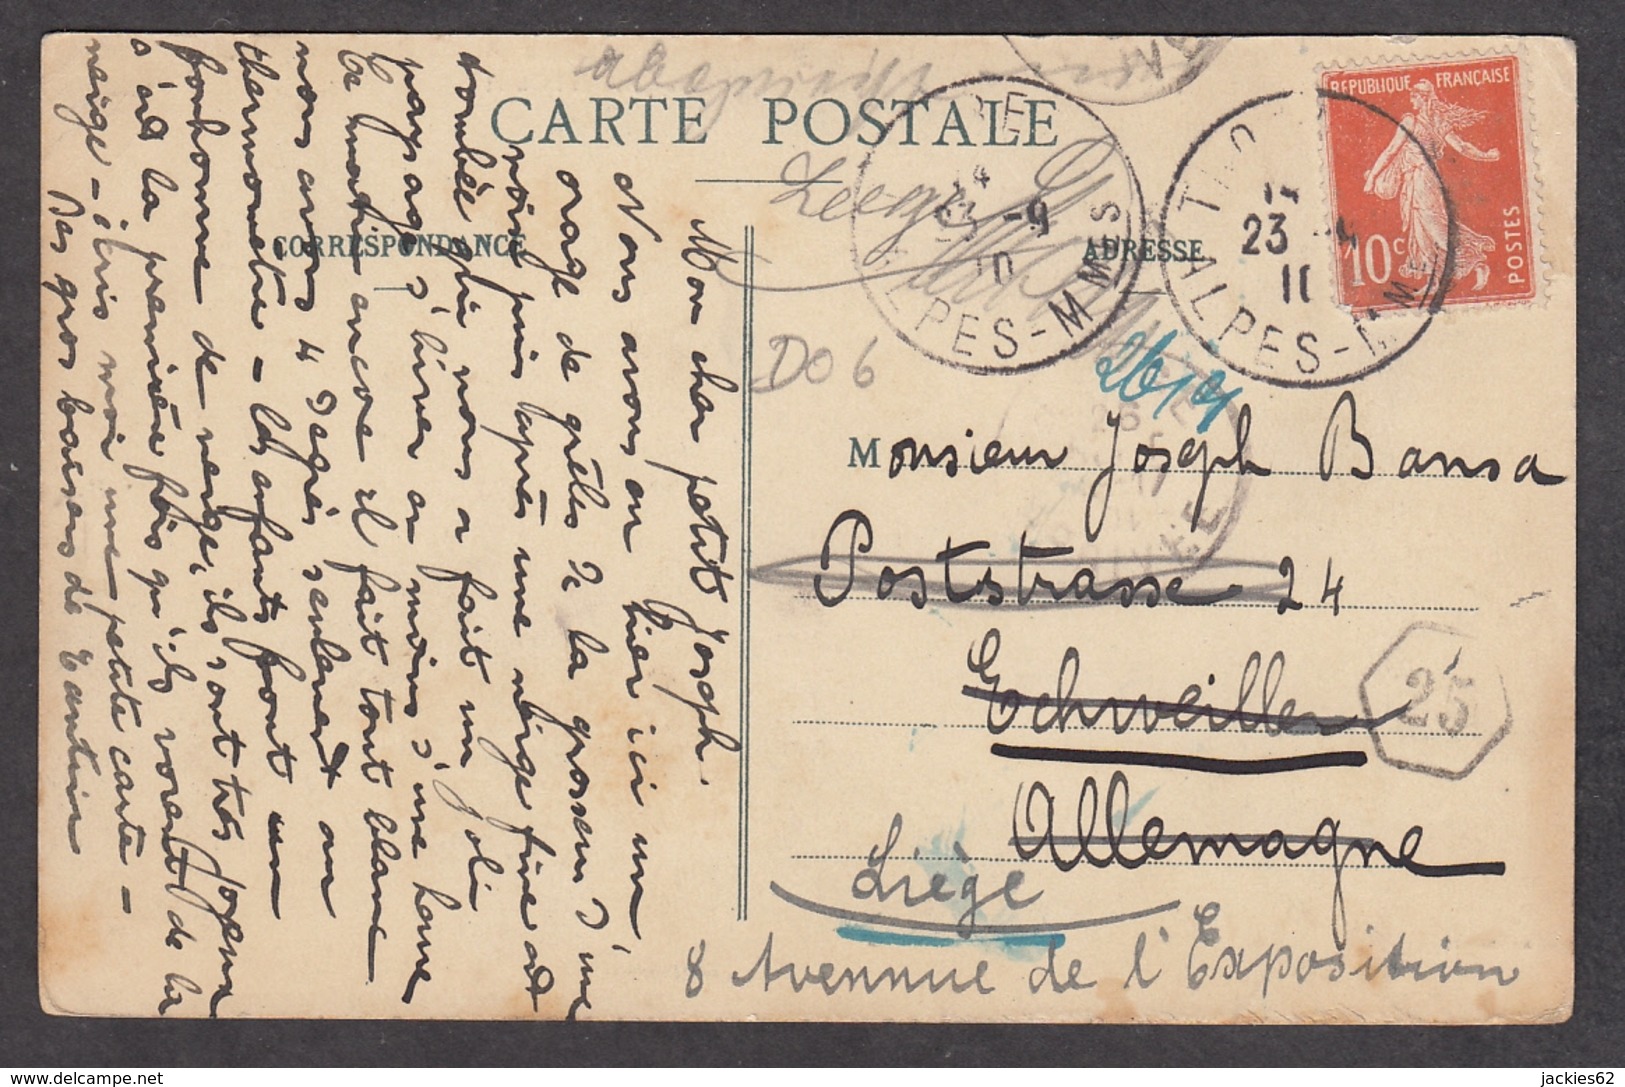 CARTE POSTALE
CORRESPONDANCE
ADRESSE
RÉPUBLIQUE FRANÇAISE
10c
POSTES
23
ALPES-M
-9
10
LPES-MMES
DO 6
26/9
Mon cher petit Joseph.
Nous avons eu hier ici un
orage de grêles de la grosseur d'une
noix puis après une neige fine est
tombée qui nous a fait un joli
paysage d'hiver au moins d'une heure
Ce matin encore il fait tout blanc
nous avons 4 degrés seulement au
thermomètre - les enfants font un
bonhomme de neige, ils sont très joyeux
c'est la première fois qu'ils voient de la
neige - écris moi une petite carte -
Des gros baisers de Tantine
Monsieur Joseph Bansa
Poststrasse 24
Echweiller
Allemagne
25
Liège
8 Avennue de l'Exposition
jackies62